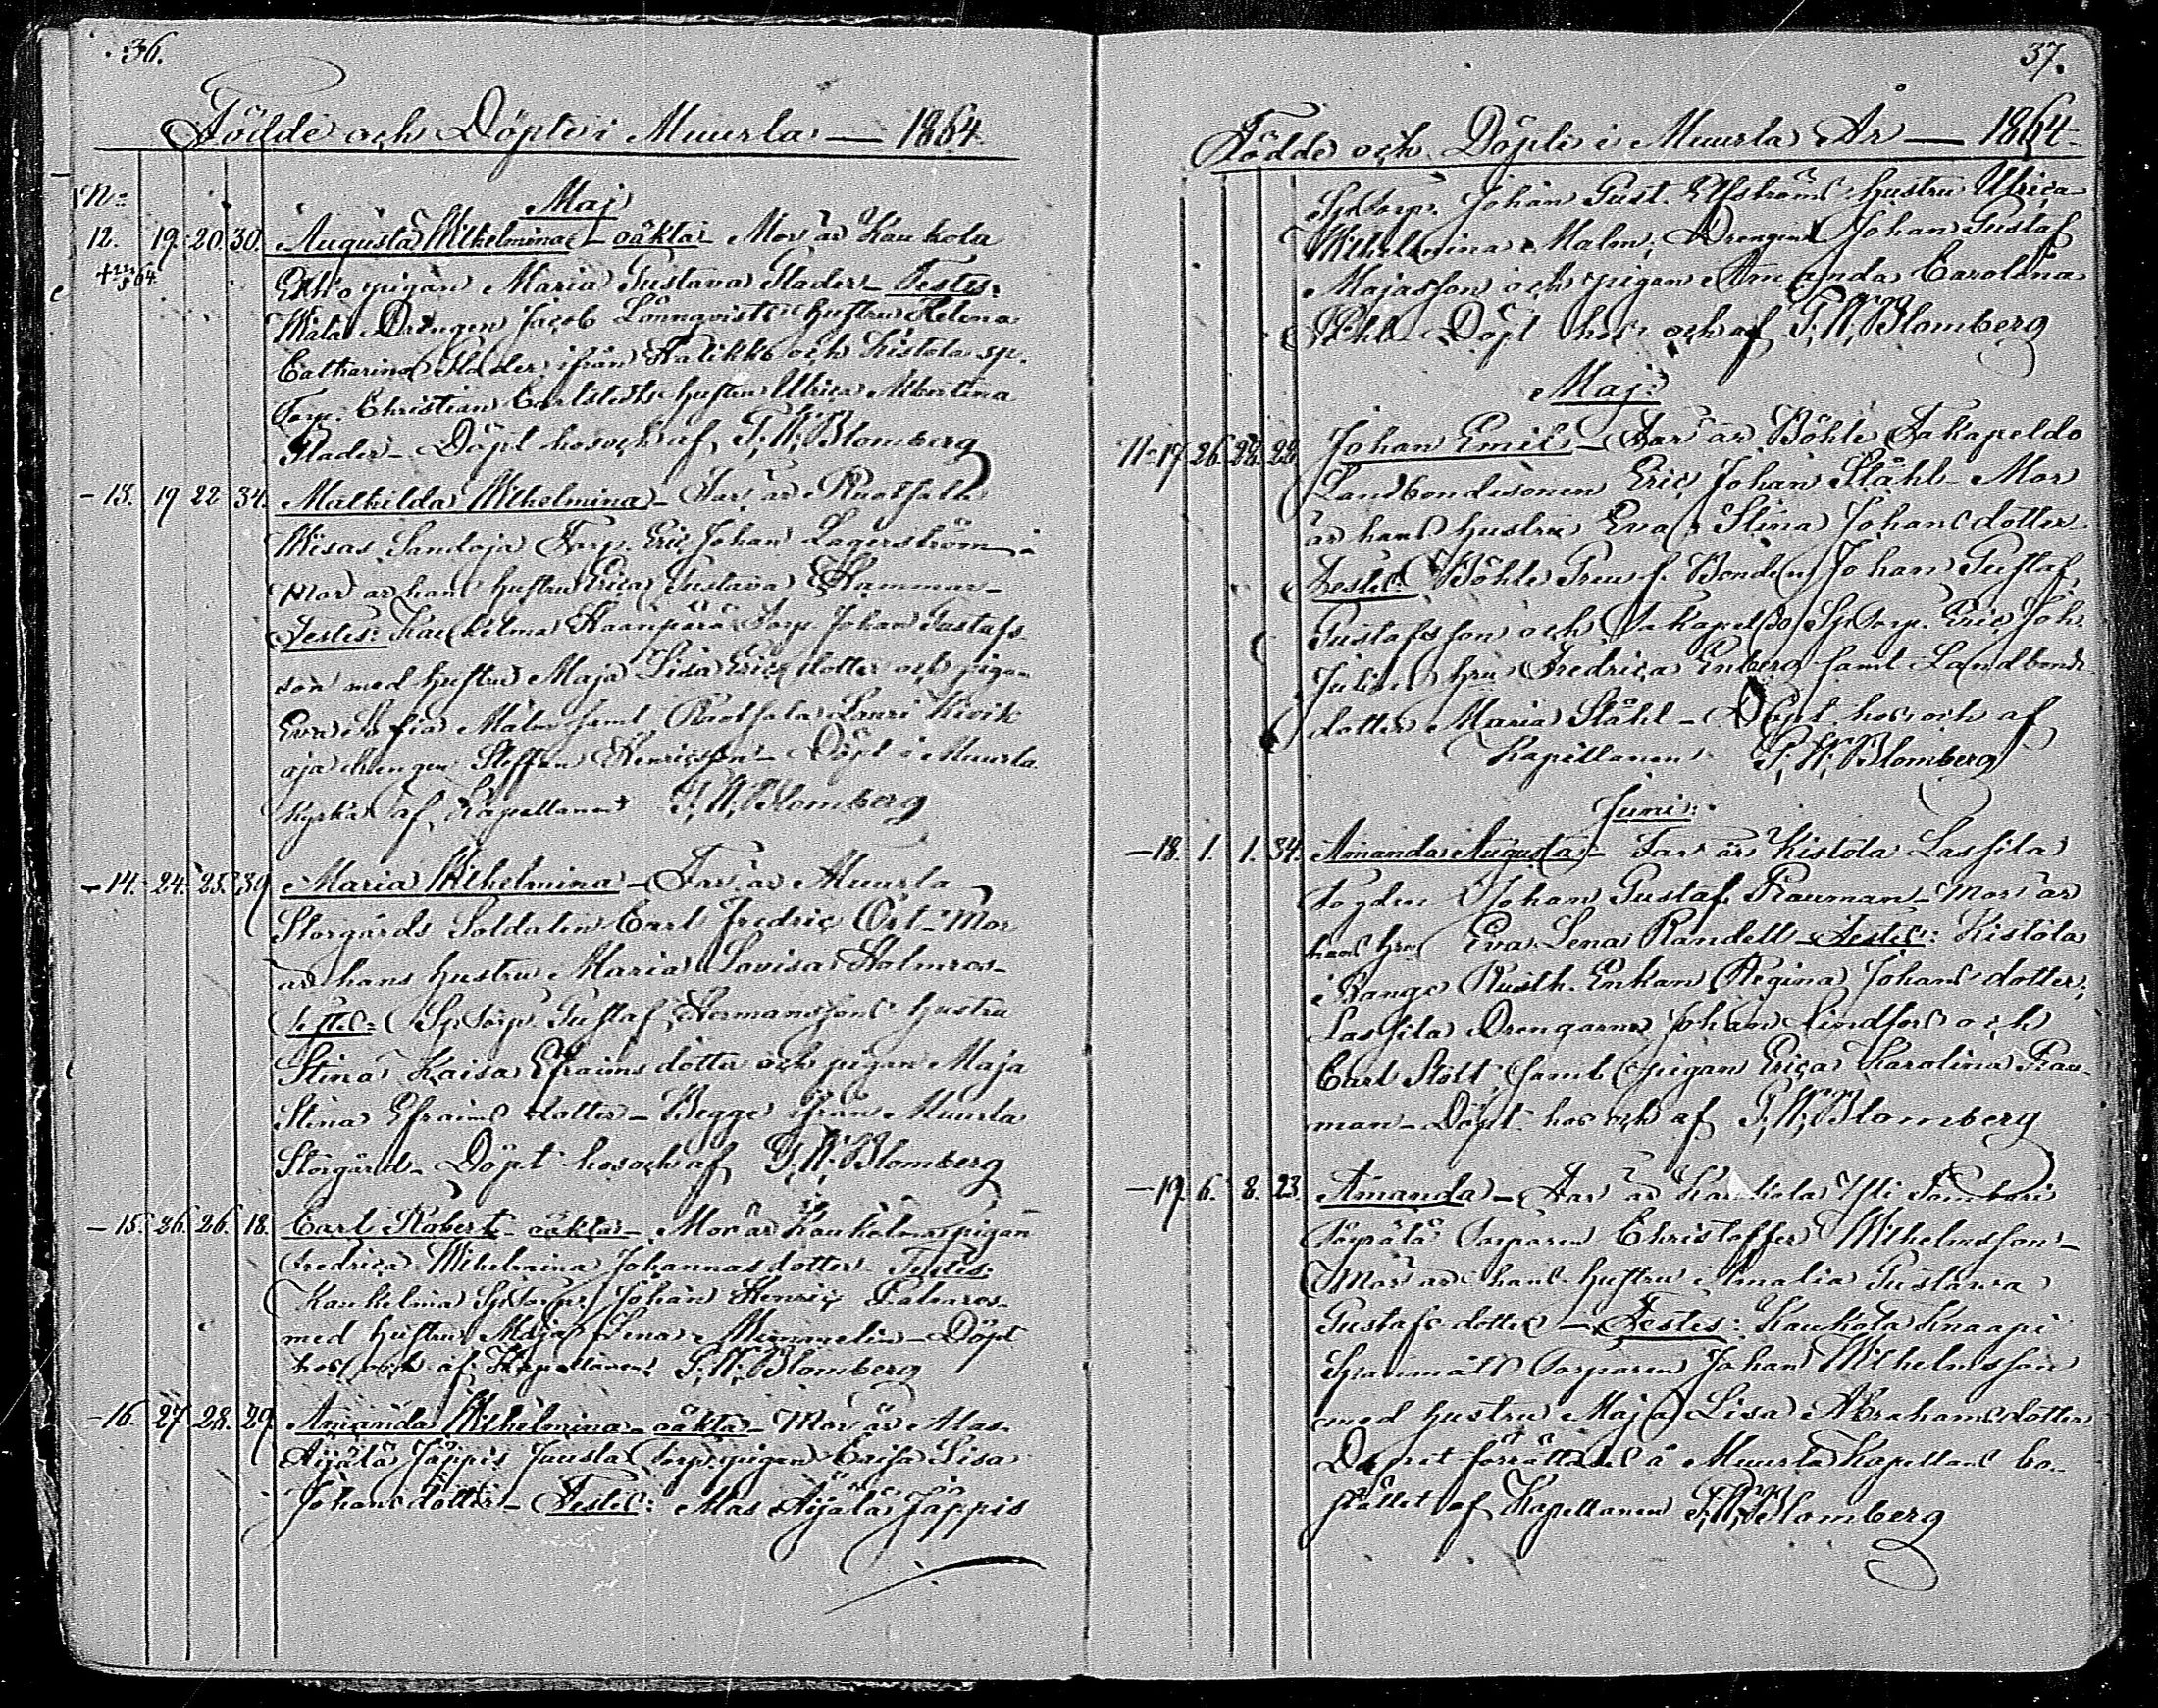 36.
Födde och Döpte i Muurla — 1864.
Maj
12. 19. 20. 30. Augusta Wilhelmina - oäkta - Mor är Kaukola
pigan Maria Gustava Flader - Testes:
Drengen Jacob Lönnqvists hustru Helena
Catharina Flader ifrån Halikko och Kistola sp.
Torp. Christian Carlstedts hustru Ulrica Albertina
Flader - Döpt hos och af F. W. Blomberg
- 13. 19 22 34. Mathilda Wilhelmina - Far är Ruotsala
Wisas Sandoja Torp. Eric Johan Lagerström -
Mor är hans hustru Erica Gustava Hammar -
Testes: Kaukelma Haanperä Torp. Johan Gustafs
son med hustru Maja Lisa Ericsdotter och pigan
Eva Sofia Malm samt Ruotsala Lauri Kivik
oja drengen Steffan Henricsson - Döpt i Muurla
Kyrka af Kapellanen F. W. Blomberg
- 14. 24. 25. 39 Maria Wilhelmina - Far är Muurla
Storgårds Soldaten Carl Fredric Ört - Mor
är hans hustru Maria Lovisa Holmros -
Testes: Sp Torp. Gustaf Hermanssons hustru
Stina Kaisa Efraimsdotter och pigan Maja
Stina Efraims dotter - Begge ifrån Muurla
Storgård - Döpt hos och af F. W. Blomberg
- 15. 26. 26. 18. Carl Robert - oäkta - Mor är Kaukelma pigan
Fredrica Wilhelmina Johannas dotter - Testes:
Kaukelma Sp Torp. Johan Henric Palmros
med hustru Maja Lena - Döpt
hos och af Kapellanen F. W. Blomberg
- 16. 27 28. 29. Amanda Wilhelmina - oäkta - Mor är Mas-
Äijälä Jäppis Juusla Torp. pigan Caisa Lisa
Johans dotter - Testes: Mas Äijälä Jäppis
37.
Födde och Döpte i Muurla År — 1864
Sp Torp. Johan Gust. Elfströms hustru Ulrica
Wilhelmina Malm, Drengen Johan Gustaf
Majasson och pigan Amanda Carolina
Döpt hos och af F. W. Blomberg
Maj:
N:o 17 26. 28. 28 Johan Emil - Far är Böhle Takapeldo
Landbondesonen Eric Johan Ståhl - Mor
är hans hustru Eva Stina Johans dotter
Testes: Böhle Bonden Johan Gustaf
Gustafsson och Takapeldo Sp Torp. Eric Joh.
hru Fredrica Enberg samt Landbonde
dotter Maria Ståhl - Döpt hos och af
Kapellanen F. W. Blomberg
Juni:
- 18. 1. 1. 34. Amanda Augusta - Far är Kistola Lassila
Fogden Johan Gustaf Rauman - Mor är
hans hru Eva Lena Randell - Testes: Kistola
Bange Rusth. Enkan Regina Johans dotter,
Lassila Drengarne Johan Lindfors och
Carl Stolt, samt pigan Erica Karolina Rau-
man - Döpt hos och af F. W. Blomberg
- 19. 6. 8. 23. Amanda - Far är Kaukola Yli
Torparen Christoffer Wilhelmsson -
Mor är hans hustru Amalia Gustava
Gustafs dotter - Testes: Kaukola Knaapi
Torparen Johan Wilhelmsson
med hustru Maja Lisa Abrahamsdotter
Dopet förrättades å Muurla Kapellans bo-
stället af Kapellanen F. W. Blomberg